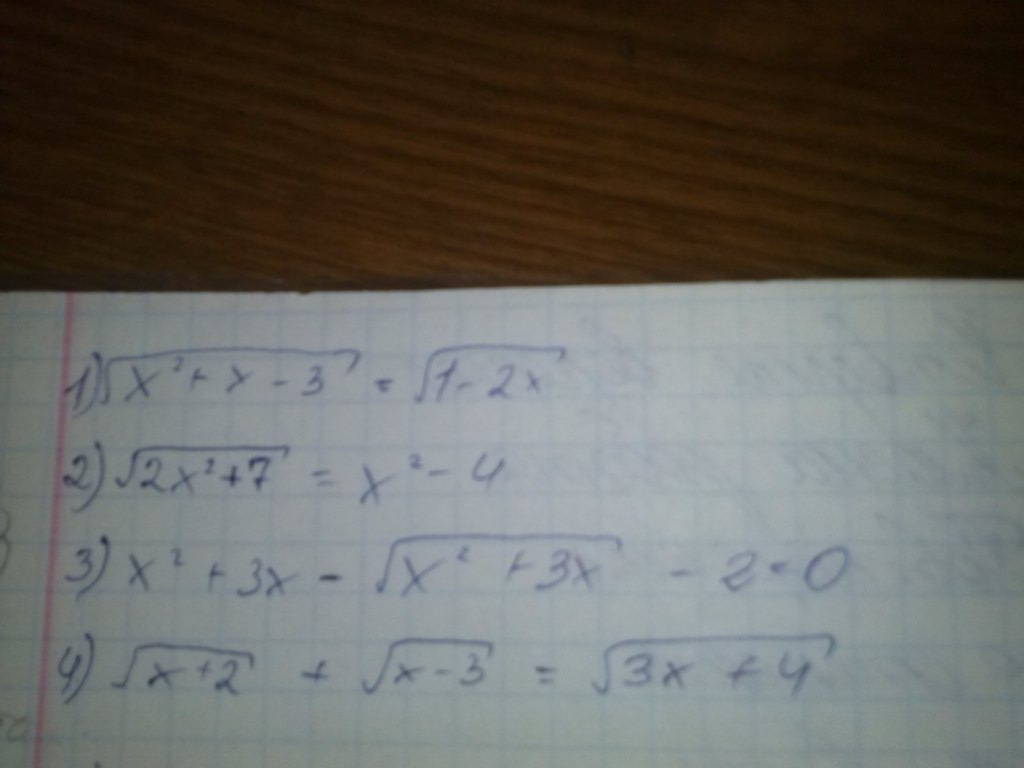 1) √(x² + x - 3) = √(1 - 2x)
2) √(2x² + 7) = x² - 4
3) x² + 3x - √(x² + 3x) - 2 = 0
4) √(x + 2) + √(x - 3) = √(3x + 4)